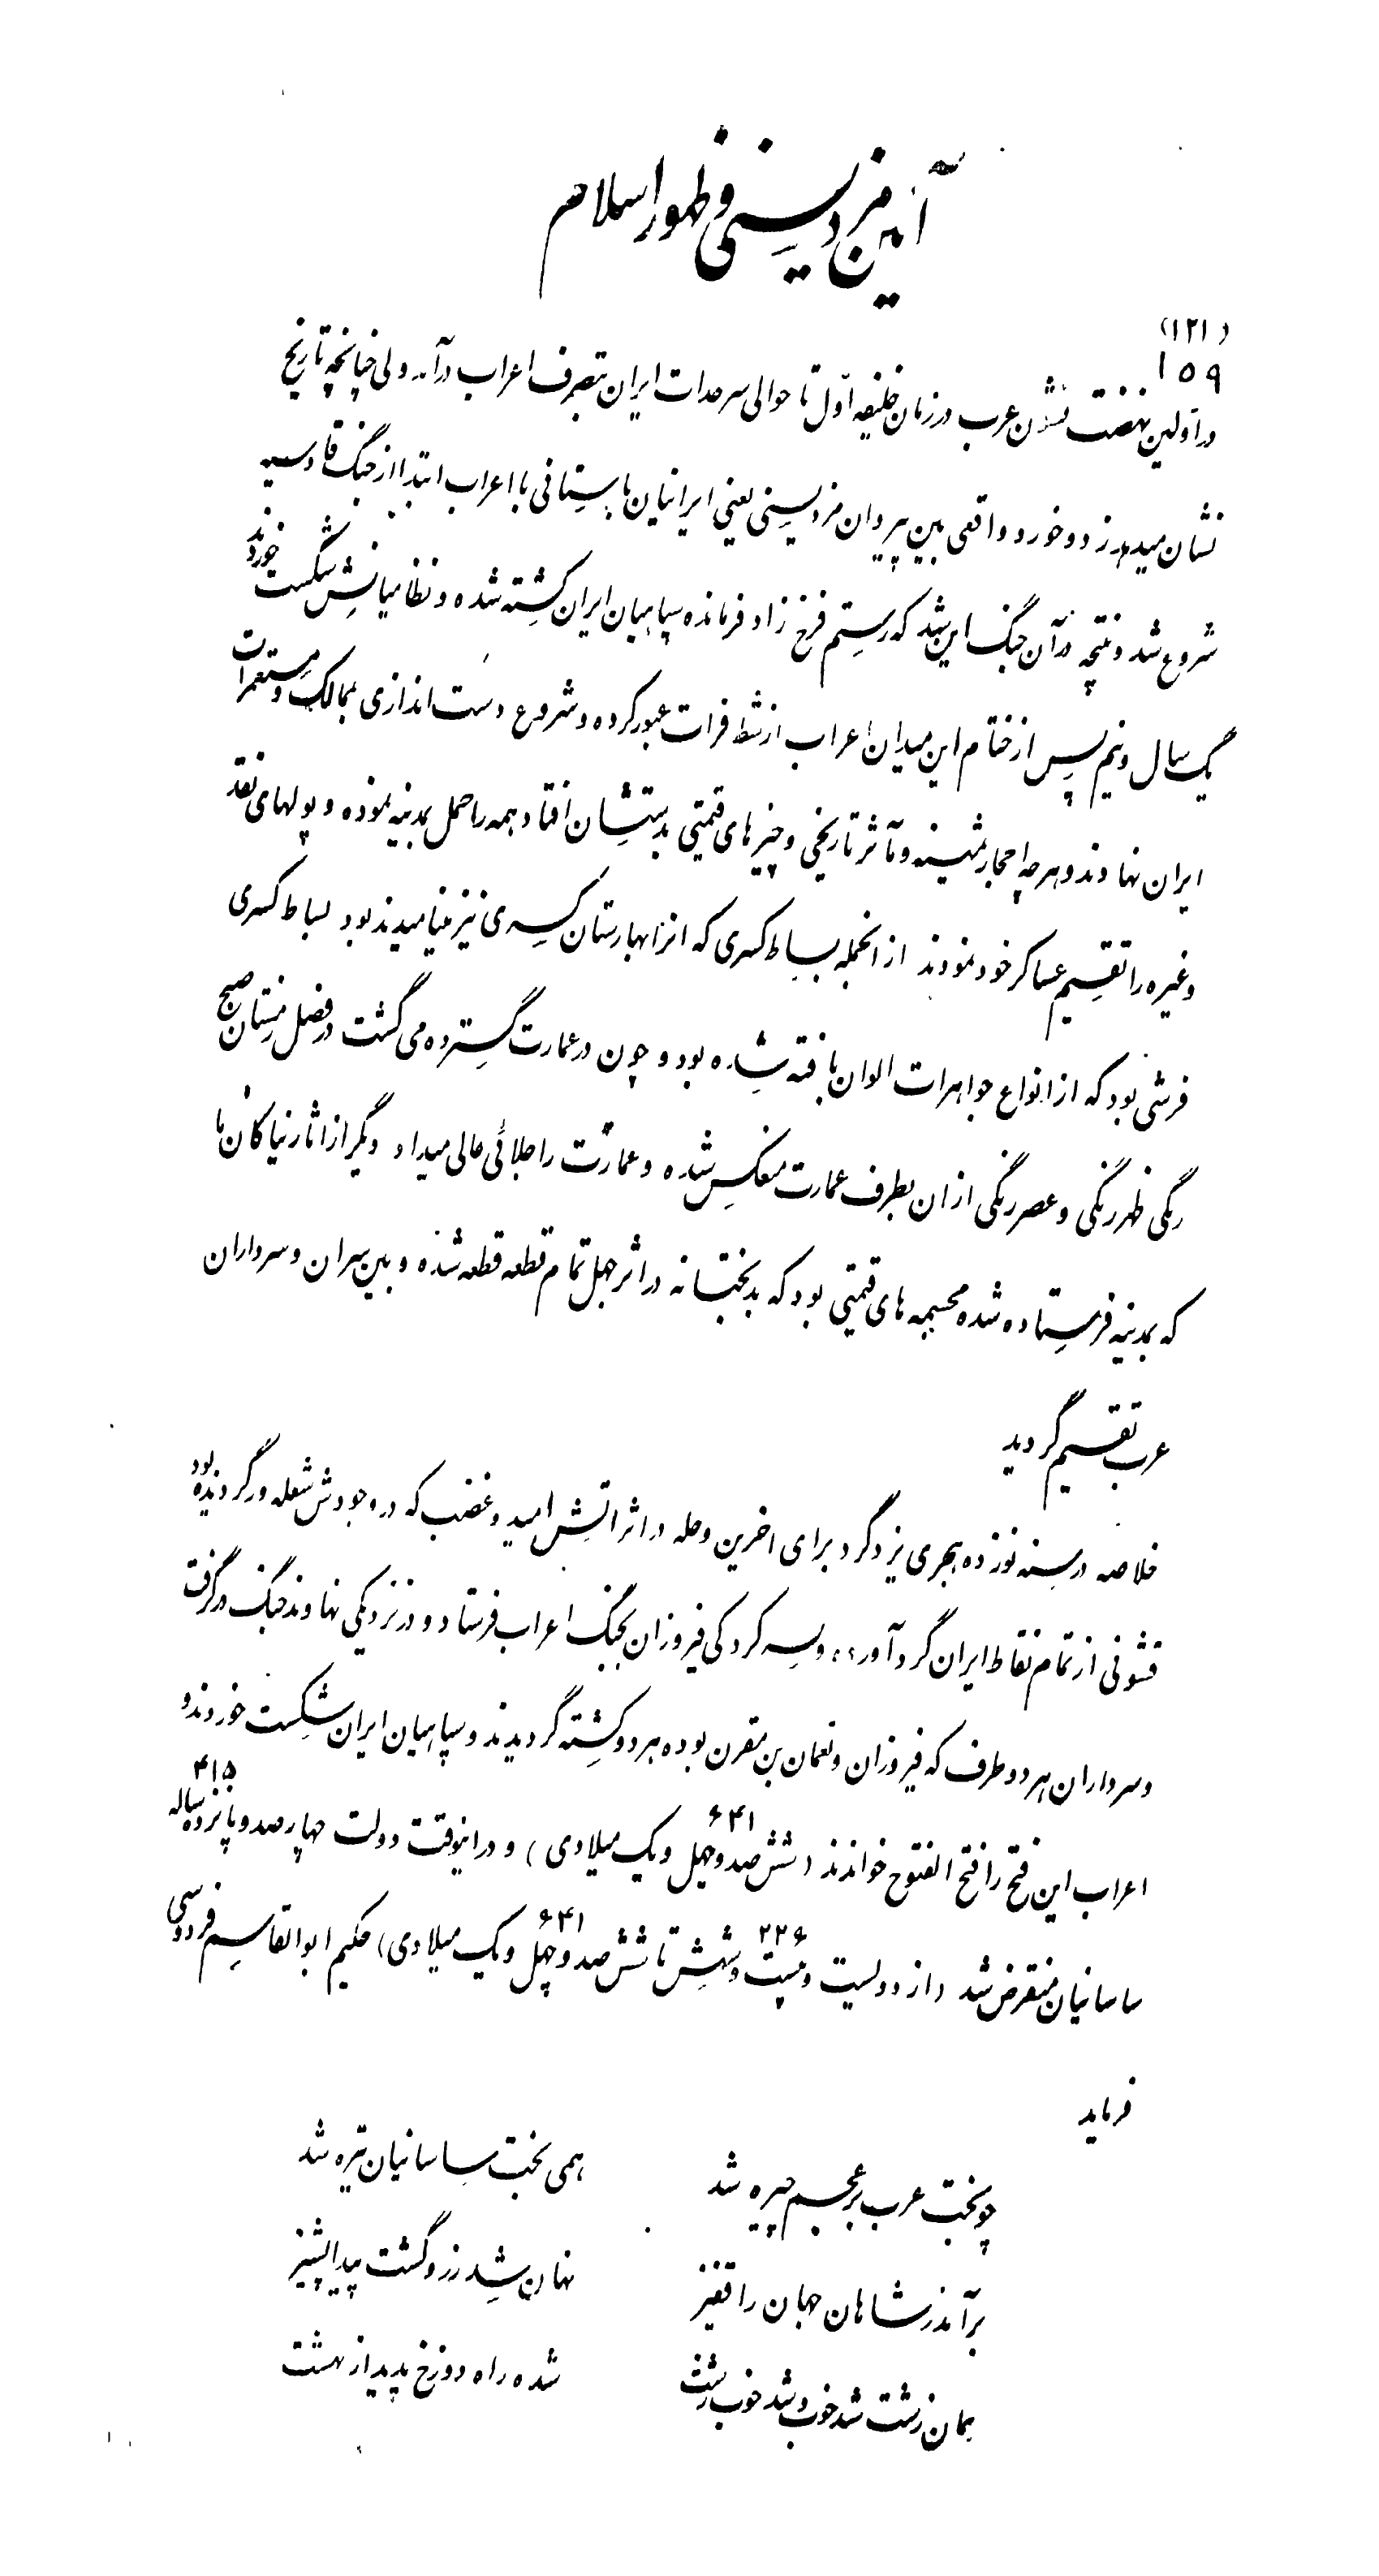 آئین مزدیسنی و ظهور اسلام
(۱۲۱)
۱۵۹
در اولین نهضت قشون عرب در زمان خلیفه اوّل تا حوالی سرحدات ایران بتصرف اعراب درآمد ولی چنانچه تاریخ
نشان میدهد زد و خورد واقعی بین پیروان مزدیسنی یعنی ایرانیان باستانی با اعراب ابتدا از جنگ قادسیه
شروع شد و نتیجه در آن جنگ این شد که رستم فرخ زاد فرمانده سپاهیان ایران کشته شده و نظامیانش شکست خوردند
یک سال و نیم پس از ختام این میدان اعراب از شط فرات عبور کرده و شروع دست اندازی بممالک و مستعمرات
ایران نهادند و هر چه احجار ثمینه و مآثر تاریخی و چیزهای قیمتی بدستشان افتاد همه را حمل بمدینه نموده و پولهای نقد
و غیره را تقسیم عساکر خود نمودند از انجمله بساط کسری که انرا بهارستان کسری نیز مینامیدند بود بساط کسری
فرشی بود که از انواع جواهرات الوان بافته شده بود و چون در عمارت گسترده می گشت در فصل زمستان صبح
رنگی ظهر رنگی و عصر رنگی از ان بطرف عمارت منعکس شده و عمارت را جلائی عالی میداد دیگر از اثار نیاکان ما
که بمدینه فرستاده شده مجسمه های قیمتی بود که بدبختانه در اثر جهل تمام قطعه قطعه شده و بین سران و سرداران
عرب تقسیم گردید
خلاصه در سنه نوزده هجری یزدگرد برای اخرین وهله در اثر اتش امید و غضب که در وجودش شعله ور گردیده بود
قشونی از تمام نقاط ایران گرد آورده و بسر کردگی فیروزان بجنگ اعراب فرستاد و در نزدیکی نهاوند جنگ درگرفت
و سرداران هر دو طرف که فیروزان و نعمان بن مقرن بوده هر دو کشته گردیدند و سپاهیان ایران شکست خوردند و
اعراب این فتح را فتح الفتوح خواندند (ششصد و چهل و یک میلادی ۶۴۱) و در اینوقت دولت چهارصد و پانزده ساله ۴۱۵
ساسانیان منقرض شد (از دویست و بیست و شش ۲۲۶ تا ششصد و چهل و یک ۶۴۱ میلادی) حکیم ابوالقاسم فردوسی
فرماید
چو بخت عرب بر عجم چیره شد همی بخت ساسانیان تیره شد
برآمد ز شاهان جهان را قفیز نهان شد زر و گشت پیدا پشیز
همان زشت شد خوب و شد خوب زشت شده راه دوزخ پدید از بهشت